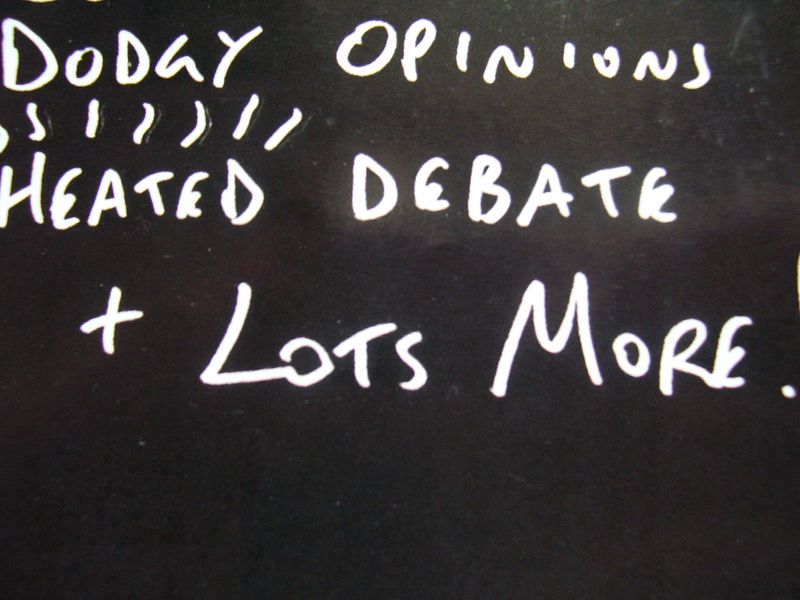 DODGY OPINIONS
HEATED DEBATE
+ LOTS MORE.